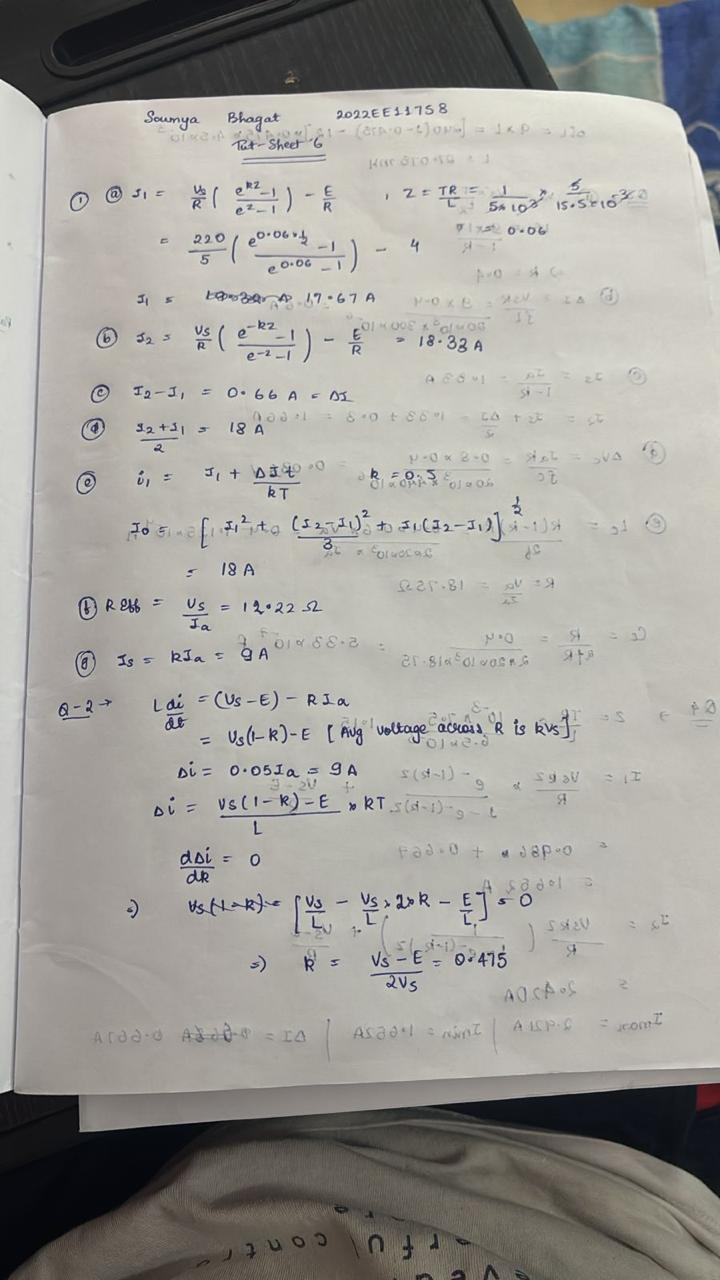 Soumya Bhagat 2022EE11758
Tut-Sheet 6
① ⓐ I1 = Vs/R ( e^kz - 1 / e^z - 1 ) - E/R , Z = TR/L = 1/5×10^3 × 5/15.5×10^-3
= 220/5 ( e^0.06×1/2 - 1 / e^0.06 - 1 ) - 4 = 0.06
I1 = 17.67 A
ⓑ I2 = Vs/R ( e^-kz - 1 / e^-z - 1 ) - E/R = 18.33 A
ⓒ I2 - I1 = 0.66 A = ΔI
ⓓ I2 + I1 / 2 = 18 A
ⓔ i1 = I1 + ΔI t / kT k = 0.5
Io = [ I1^2 + (I2 - I1)^2 / 3 + I1 (I2 - I1) ]^1/2
= 18 A
ⓕ R eff = Vs / Ia = 12.22 Ω
ⓖ Is = kIa = 9 A
Q-2 → L di/dt = (Vs - E) - R Ia
= Vs(1-k) - E [ Avg voltage across R is kVs ]
Δi = 0.05 Ia = 9 A
Δi = Vs(1-k) - E / L × kT
dΔi / dk = 0
⇒ [ Vs/L - Vs/L × 2×k - E/L ] = 0
⇒ k = Vs - E / 2Vs = 0.475